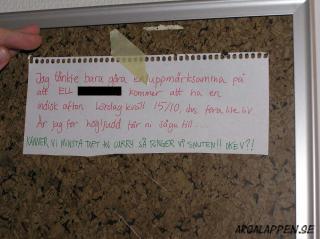 Jag tänkte bara göra er uppmärksamma på
att ELL kommer att ha en
indisk afton Lördag kväll 15/10, das föra lite liv
Är jag för högljudd får ni säga till...
KÄNNER VI MINSTA TOFT AV CURRY SÅ RINGER VI SNUTEN!! OKEJ?!
ARGALAPPEN.SE